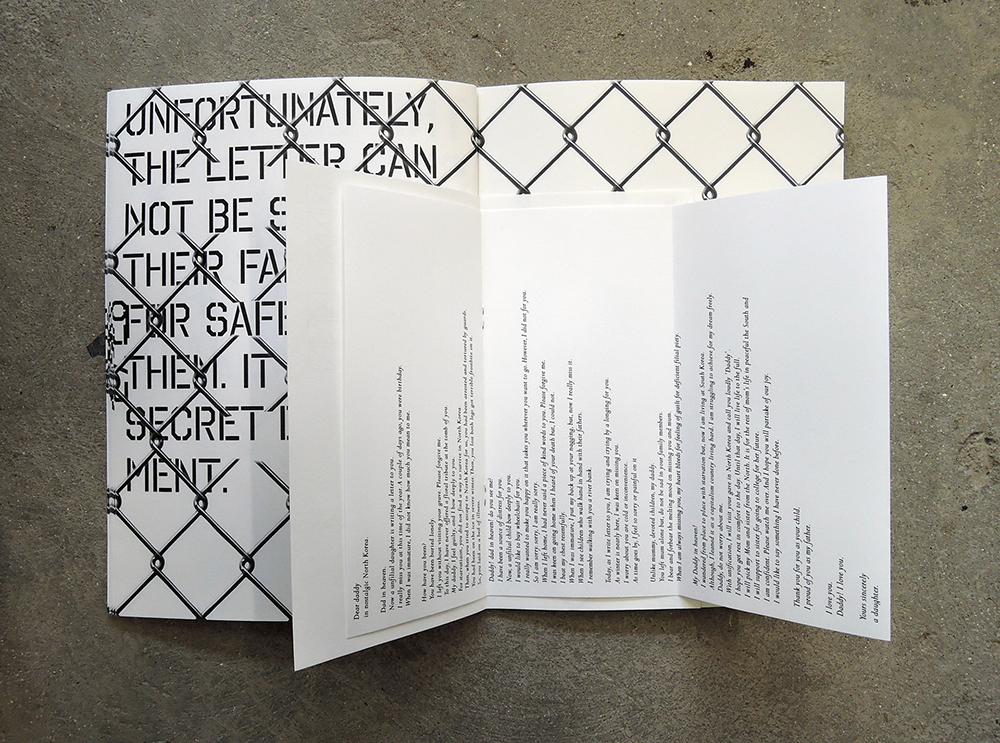 UNFORTUNATELY,
THE LETTER CAN
NOT BE S
THEIR FA
FOR SAFE
THEM. IT
SECRET I
MENT.
Dear daddy
in nostalgic North Korea.
Dad in heaven.
Now a unfilial daughter is writing a letter to you.
I really miss you at this time of the year. A couple of days ago, you were birthday.
When I was immature, I did not know how much you mean to me.
How have you been?
You have been buried lonely.
I left you without visiting your grave. Please forgive me.
To this day, I have never offered a floral tribute at the tomb of you.
My daddy! I feel guilty, and I bow deeply to you.
For starvation, you did not find a way to survive in North Korea.
Then, when you tried to escape to North Korea for us, you had been arrested and tortured by guards.
You had been on the ice in severe winter. Then, you lost both legs got terrible frostbite on it.
So, you laid on a bed of illness.
Daddy! dad in heaven! do you see me?
I have been a source of distress for you.
Now, a unfilial child bow deeply to you.
I would like to buy wheelchair for you.
I really wanted to make you happy on it that takes you wherever you want to go. However, I did not for you.
So I am sorry, sorry, I am really sorry.
When I left home, I had never said a piece of kind words to you. Please forgive me.
I was keen on going home when I heard of your death but, I could not.
Beat my chest resentfully.
When I was immature, I put my back up at your nagging, but, now I really miss it.
When I see children who walk hand in hand with their fathers.
I remember walking with you a river bank.
Today, as I write letter to you, I am crying and crying by a longing for you.
As winter is nearly here, I am keen on missing you.
I worry about you are cold or inconvenience.
As time goes by, I feel so sorry or painful on it
Unlike mummy, devoted children, my daddy.
You left alone but, do not be sad in your family members.
I bear and forbear the melting mood on missing you and mum.
When I am always missing you, my heart bleeds for feeling of guilt for deficient filial piety.
My Daddy in heaven!
I wandered from place to place with starvation but, now I am living at South Korea.
Although, I landed in a capitalism country living hard. I am struggling to achieve for my dream freely.
Daddy, do not worry about me.
With unification, I will visit your gave in North Korea and call you loudly 'Daddy'.
I hope you get rest in comfort to the day. Until that day, I will live life to the full.
I will pick my Mom and sister from the North. It is for the rest of mom's life in peaceful the South and
I will support to sister for going to collage for her future.
I am confident. Please watch me over. And I hope you will partake of our joy.
I would like to say something I have never done before.
Thank you for you as your child.
I proud of you as my father.
I love you.
Daddy! I love you.
Yours sincerely
a daughter.